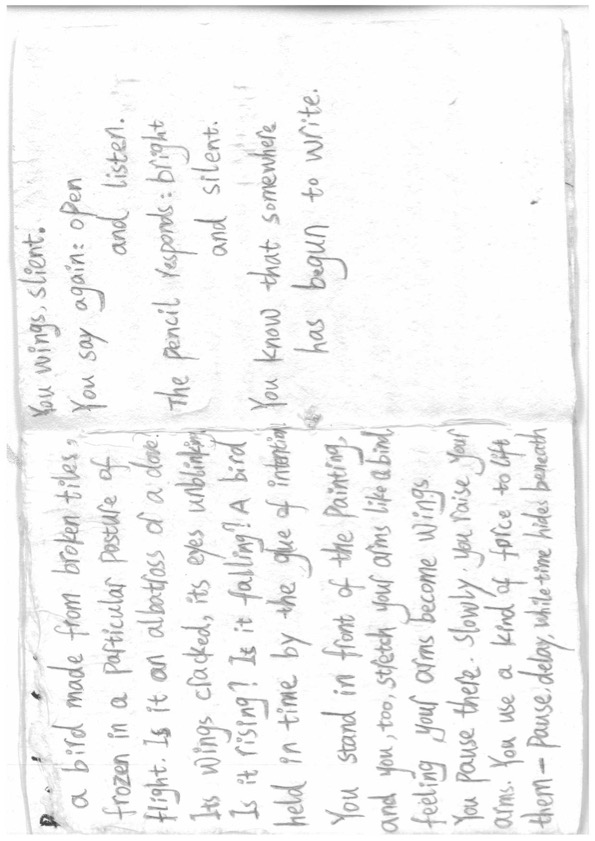 a bird made from broken tiles,
frozen in a particular posture of
flight. Is it an albatross or a dove.
Its wings cracked, its eyes unblinking
Is it rising? Is it falling? A bird
held in time by the glue of intention.
You stand in front of the Painting,
and you, too, stretch your arms like a bird,
feeling, your arms become wings
You Pause there. Slowly. you raise your
arms. You use a kind of force to lift
them — Pause, delay, while time hides beneath
You wings, slient.
You say again: open
and listen.
The pencil responds: bright
and silent.
You know that somewhere
has begun to write.